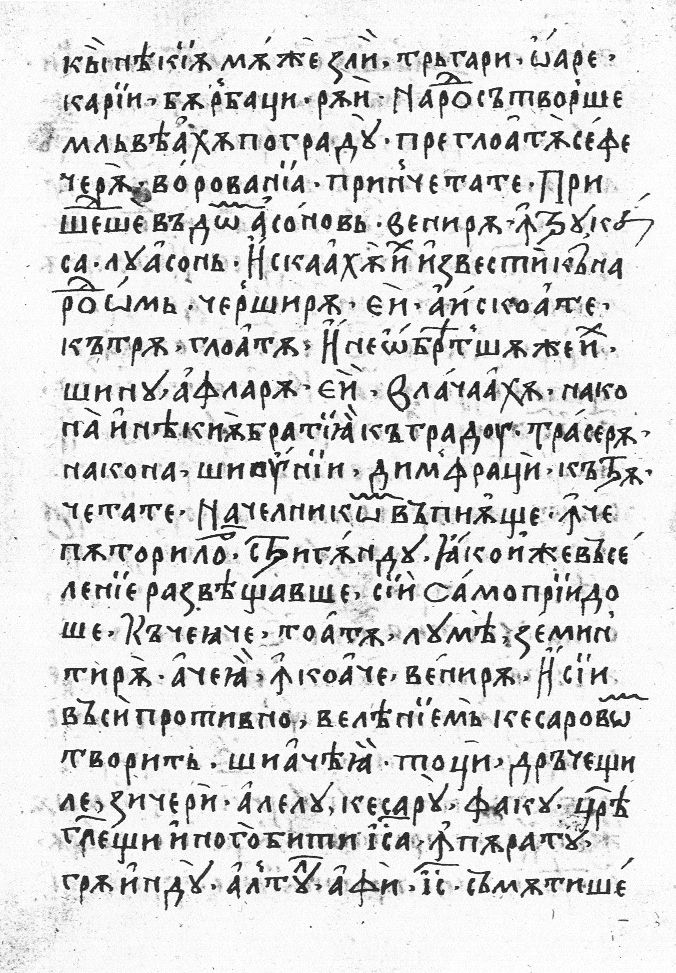 кы̀нѣкїѧ мѫ́же злы̀и, трьгари, ѡ҆́аре,
карїи, бѫрбаци, рѫ́й. Наро̑ сътворше
мльвѣа҆́хѫ по градꙋ̀. преглоа҆тѫ се́фе
черѫ̀, во́рованїа, прин҆четате. При
ше̑ше въ дѡ̑ а҆со́новь. вениря. ꙟ ꙃꙋ кꙋ́
са. лꙋа҆сонь. И҆ скаа҆́хѫ й и҆звести́ къ на
ро̑ѡ҆́мь. черширѫ. ей. а҆́и скоа҆те.
кътрѫ, глоа҆тѫ. И҆ не ѡ҆брѣ̑тшѫ же й.
шинꙋ, а҆флара. ей. влача́а҆хѫ. нако
на̀ и҆ нѣкиѫ братїѫ̀ къ градоу. тра́серѫ.
накона, ши оу҆́нїи, дим҆фраци̂, къ ꙃѫ.
четате. Начелникѡ̑ въпиѫще. ꙟче
пѫторило̑. стриги́ндꙋ, ꙗ҆́ко и҆же въ се́
ленїе развѣщавше, сїй са́мо прїидо
ше. Къ чеꙗче, тоа҆тѫ, лꙋмѣ, земин҆
тирѫ̀. а҆чеꙗ̀, ꙟкоа҆че, ве́нирѫ. И҆ сїи
въсѝ противно, велѣнїемь̀ кесаровѡ̑
творить. ши а҆чѣꙗ̀. тоци̂, дръчещи
ле, зичери̂. а҆лелꙋ, кесарꙋ̀, факꙋ. цр̑ѣ
гл̑ещи и҆ного̀ бити і҆с̑а. ꙟпѫратꙋ̀,
грѫи҆ндꙋ̀. а҆лтꙋ̑. а҆фи̂. і҆с̑. съмѫтише́